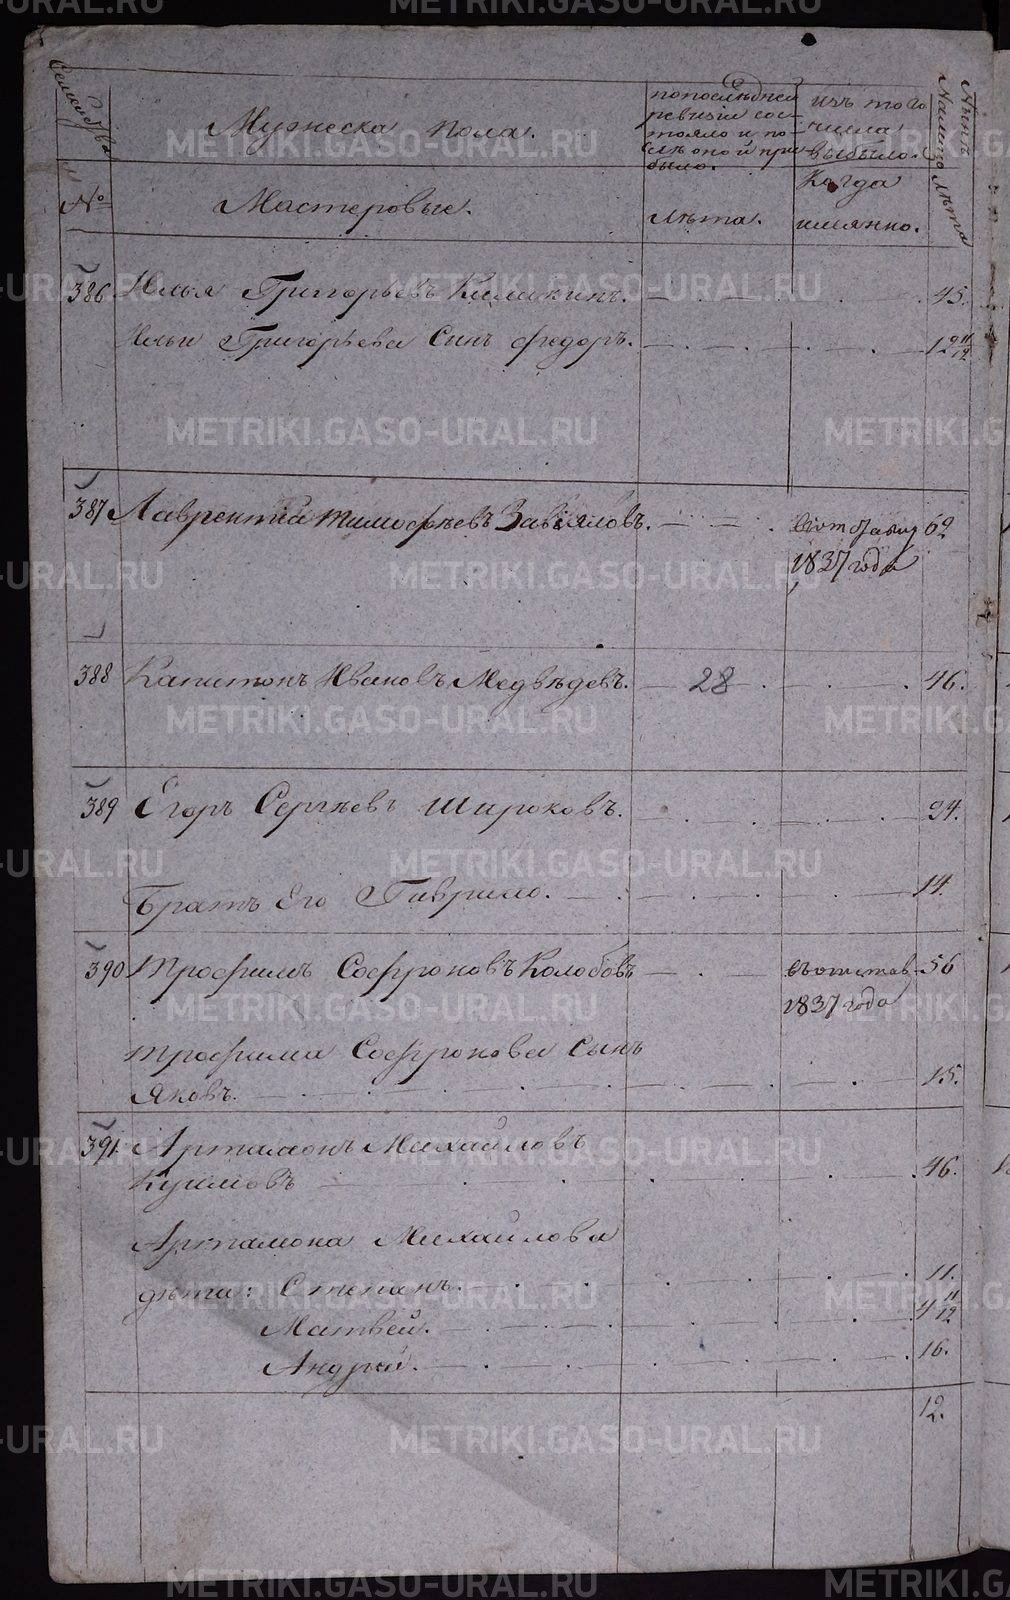 METRIKI.GASO-URAL.RU
Семействъ
Мужеска пола.
попослѣдней
ревизіи сос-
тояло и по-
слѣ оной при
было.
изъ того
числа
выбыло.
Лѣта
№
Мастеровые.
лѣта.
Когда
имянно.
лѣта
386 Илья Григорьевъ Калинкинъ. 45.
Ильи Григорьева Сынъ Федоръ. 12 11/12
387 Лаврентіа Тимофѣевъ Завьяловъ. 62
1837 года
388 Капитонъ Ивановъ Медвѣдевъ. 28 46.
389 Егоръ Сергѣевъ Широковъ. 24.
Братъ Его Гаврило. 14.
390 Трофимъ Софроновъ Колобовъ въ отстав 56
1837 года
Трофима Софронова Сынъ
Яковъ. 15.
391. Артамонъ Михайловъ
Куимовъ 46.
Артамона Михайлова
дѣти: Степанъ. 11.
Матвей. 4 11/12
Андрей. 16.
12.